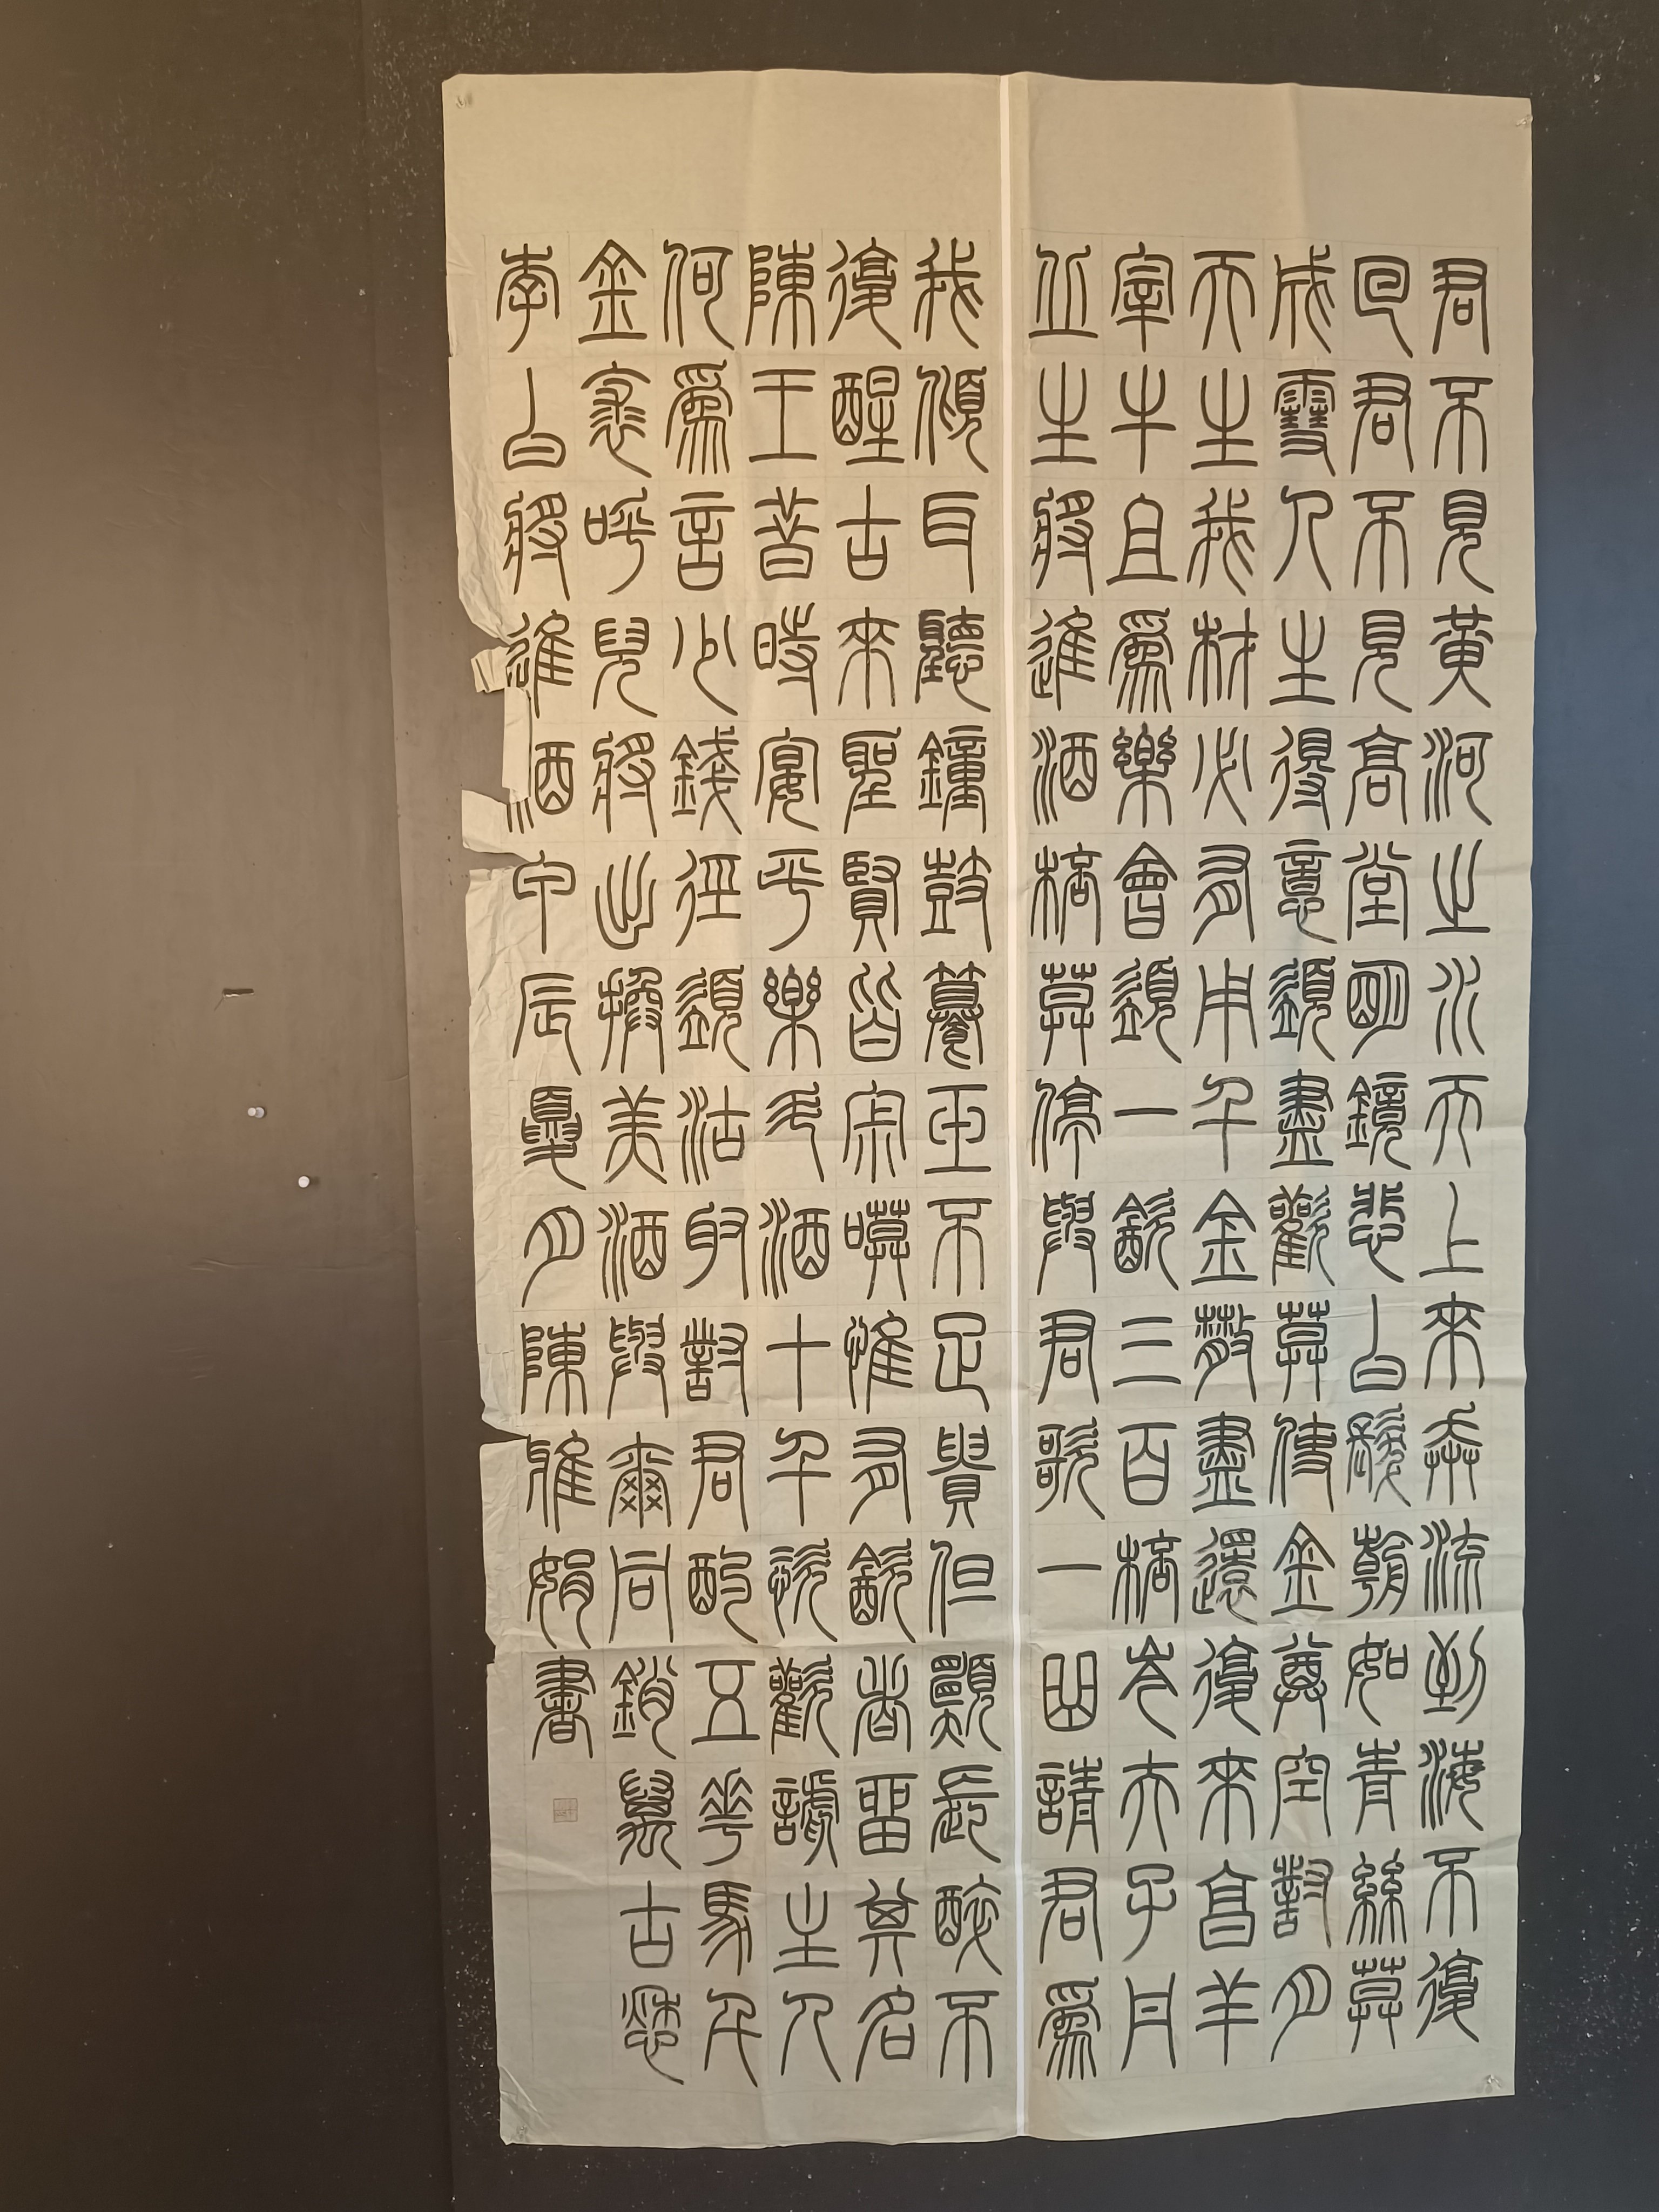 君不見黃河之水天上來奔流到海不復
回君不見高堂明鏡悲白髮朝如青絲莫
成雪人生得意須盡歡莫使金尊空對月
天生我材必有用千金散盡還復來亯羊
宰牛且爲樂會須一飲三百桮岑夫子丹
丘生將進酒桮莫停與君歌一曲請君爲
我傾耳聽鐘鼓饌玉不足貴但願長醉不
復醒古來聖賢皆寂嘆惟有飲者留其名
陳王昔時宴平樂斗酒十千恣歡謔主人
何爲言少錢徑須沽取對君酌五花馬千
金裘呼兒將出換美酒與爾同銷萬古愁
李白將進酒甲辰夏月陳雅娟書